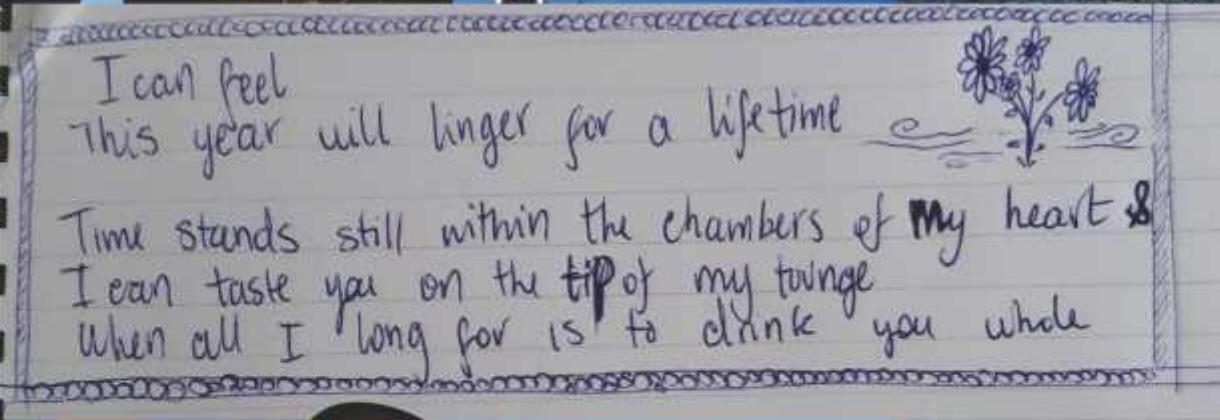 I can feel
This year will linger for a lifetime
Time stands still within the chambers of my heart &
I can taste you on the tip of my tounge
When all I long for is to drink you whole